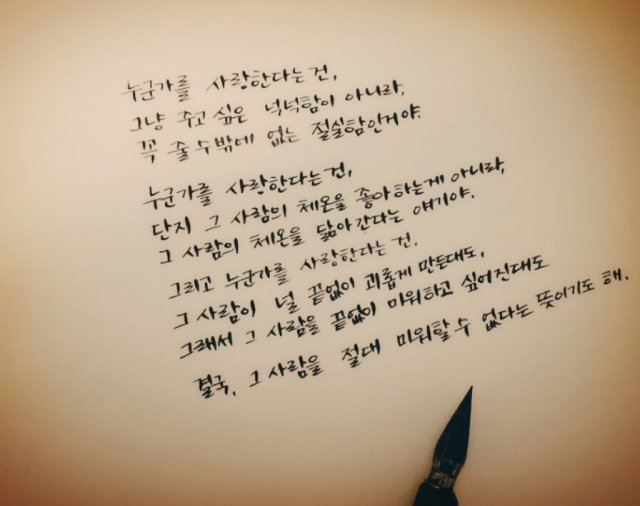 누군가를 사랑한다는건,
그냥 주고 싶은 넉넉함이 아니라,
꼭 줄수밖에 없는 절실함인거야.
누군가를 사랑한다는건,
단지 그 사람의 체온을 좋아하는게 아니라,
그 사람의 체온을 닮아간다는 얘기야.
그리고 누군가를 사랑한다는건,
그 사람이 널 끝없이 괴롭게 만든대도,
그래서 그 사람을 끝없이 미워하고 싶어진대도
결국, 그 사람을 절대 미워할수 없다는 뜻이기도 해.